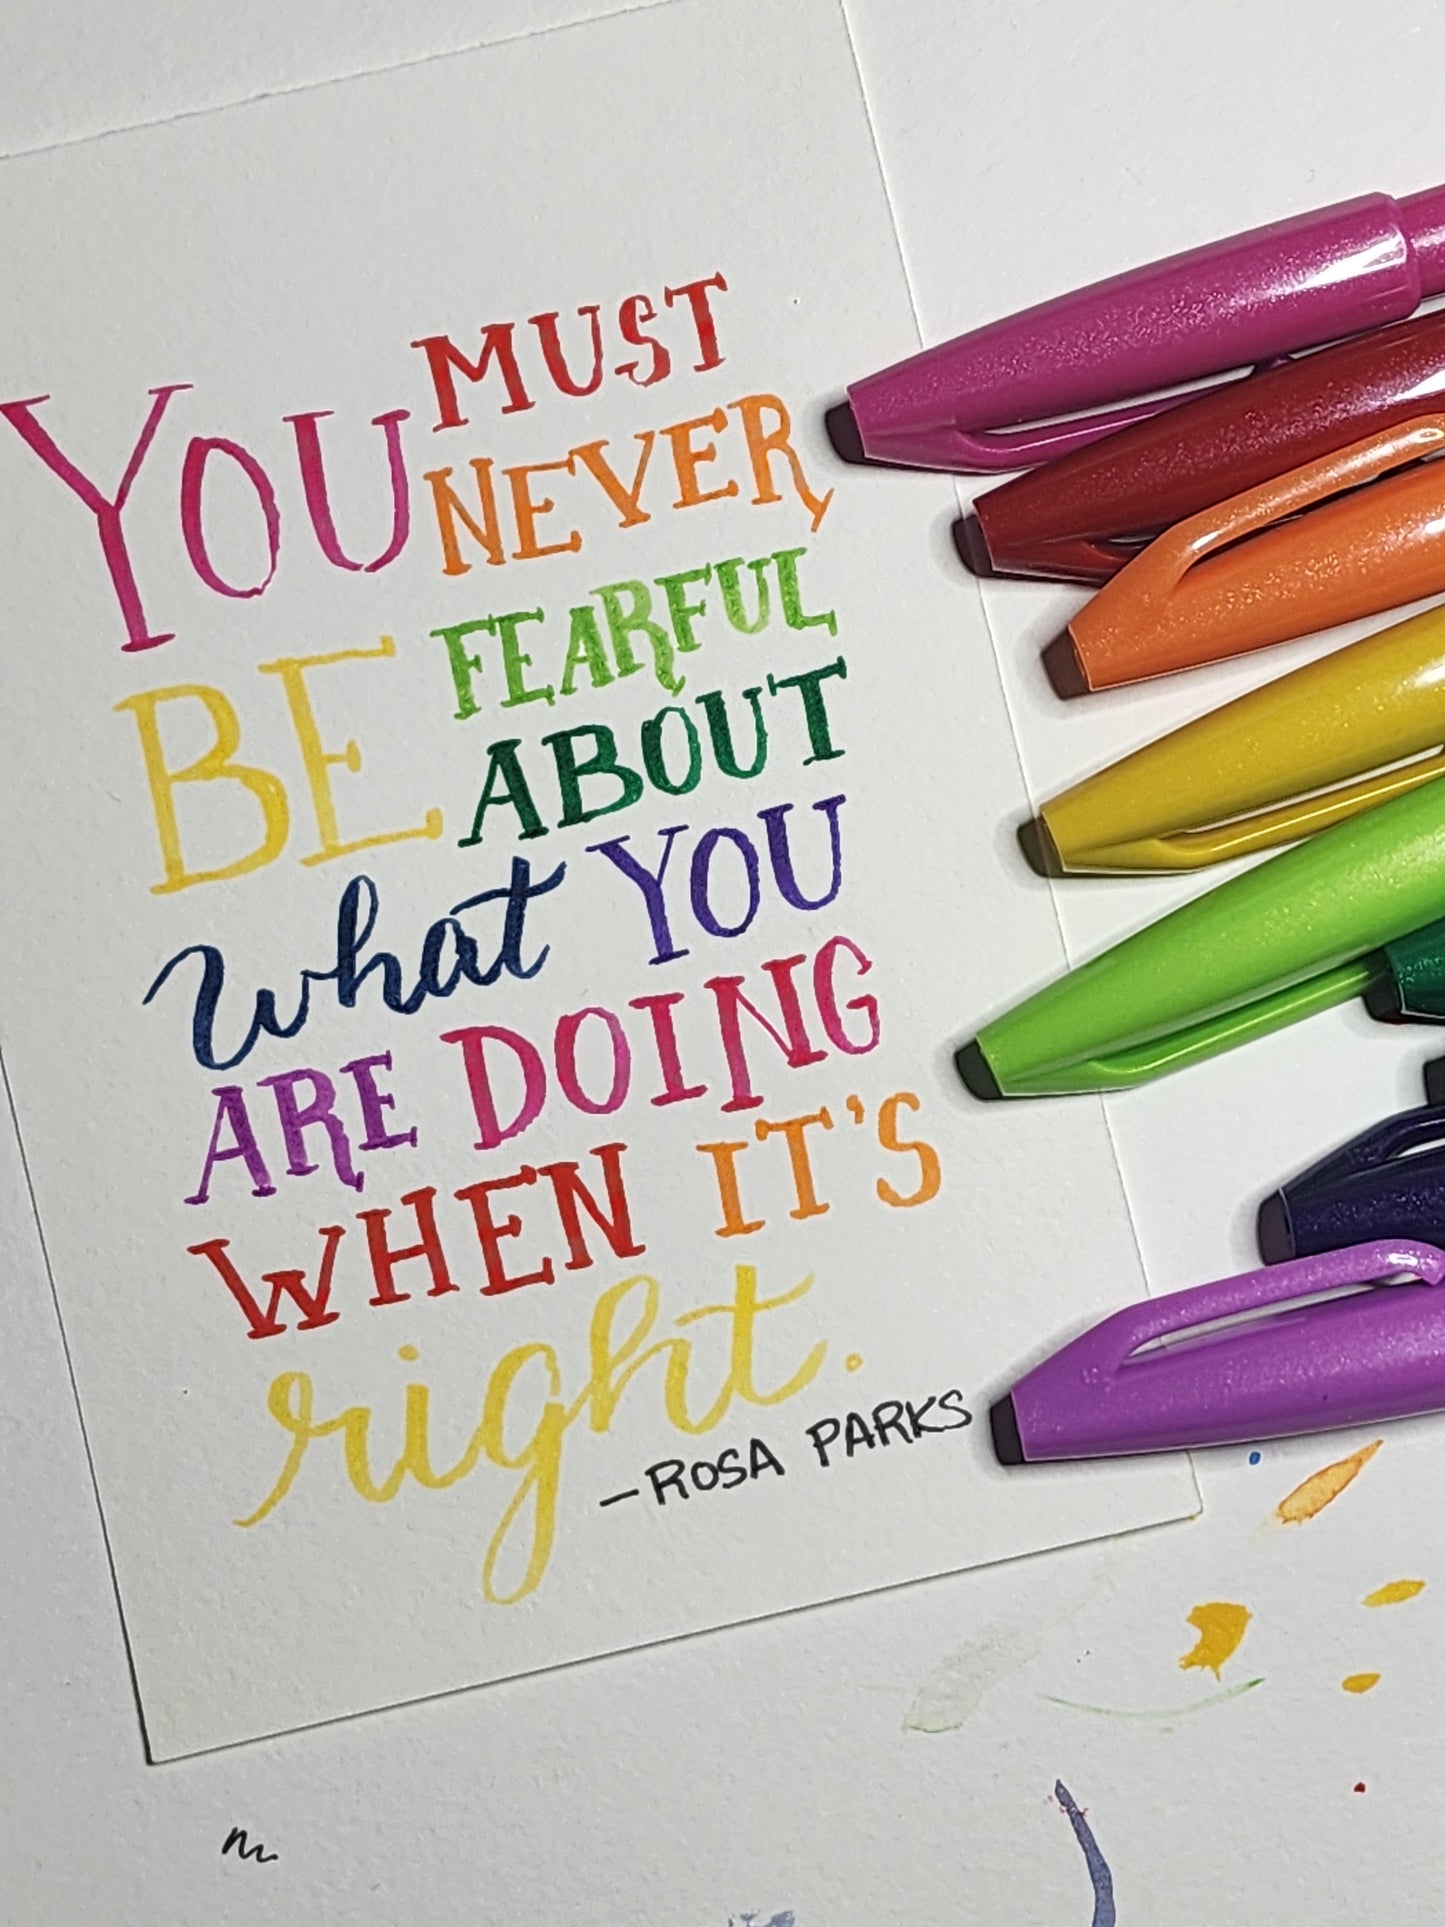 YOU MUST
NEVER
BE FEARFUL
ABOUT
what YOU
ARE DOING
WHEN IT'S
right.
—ROSA PARKS